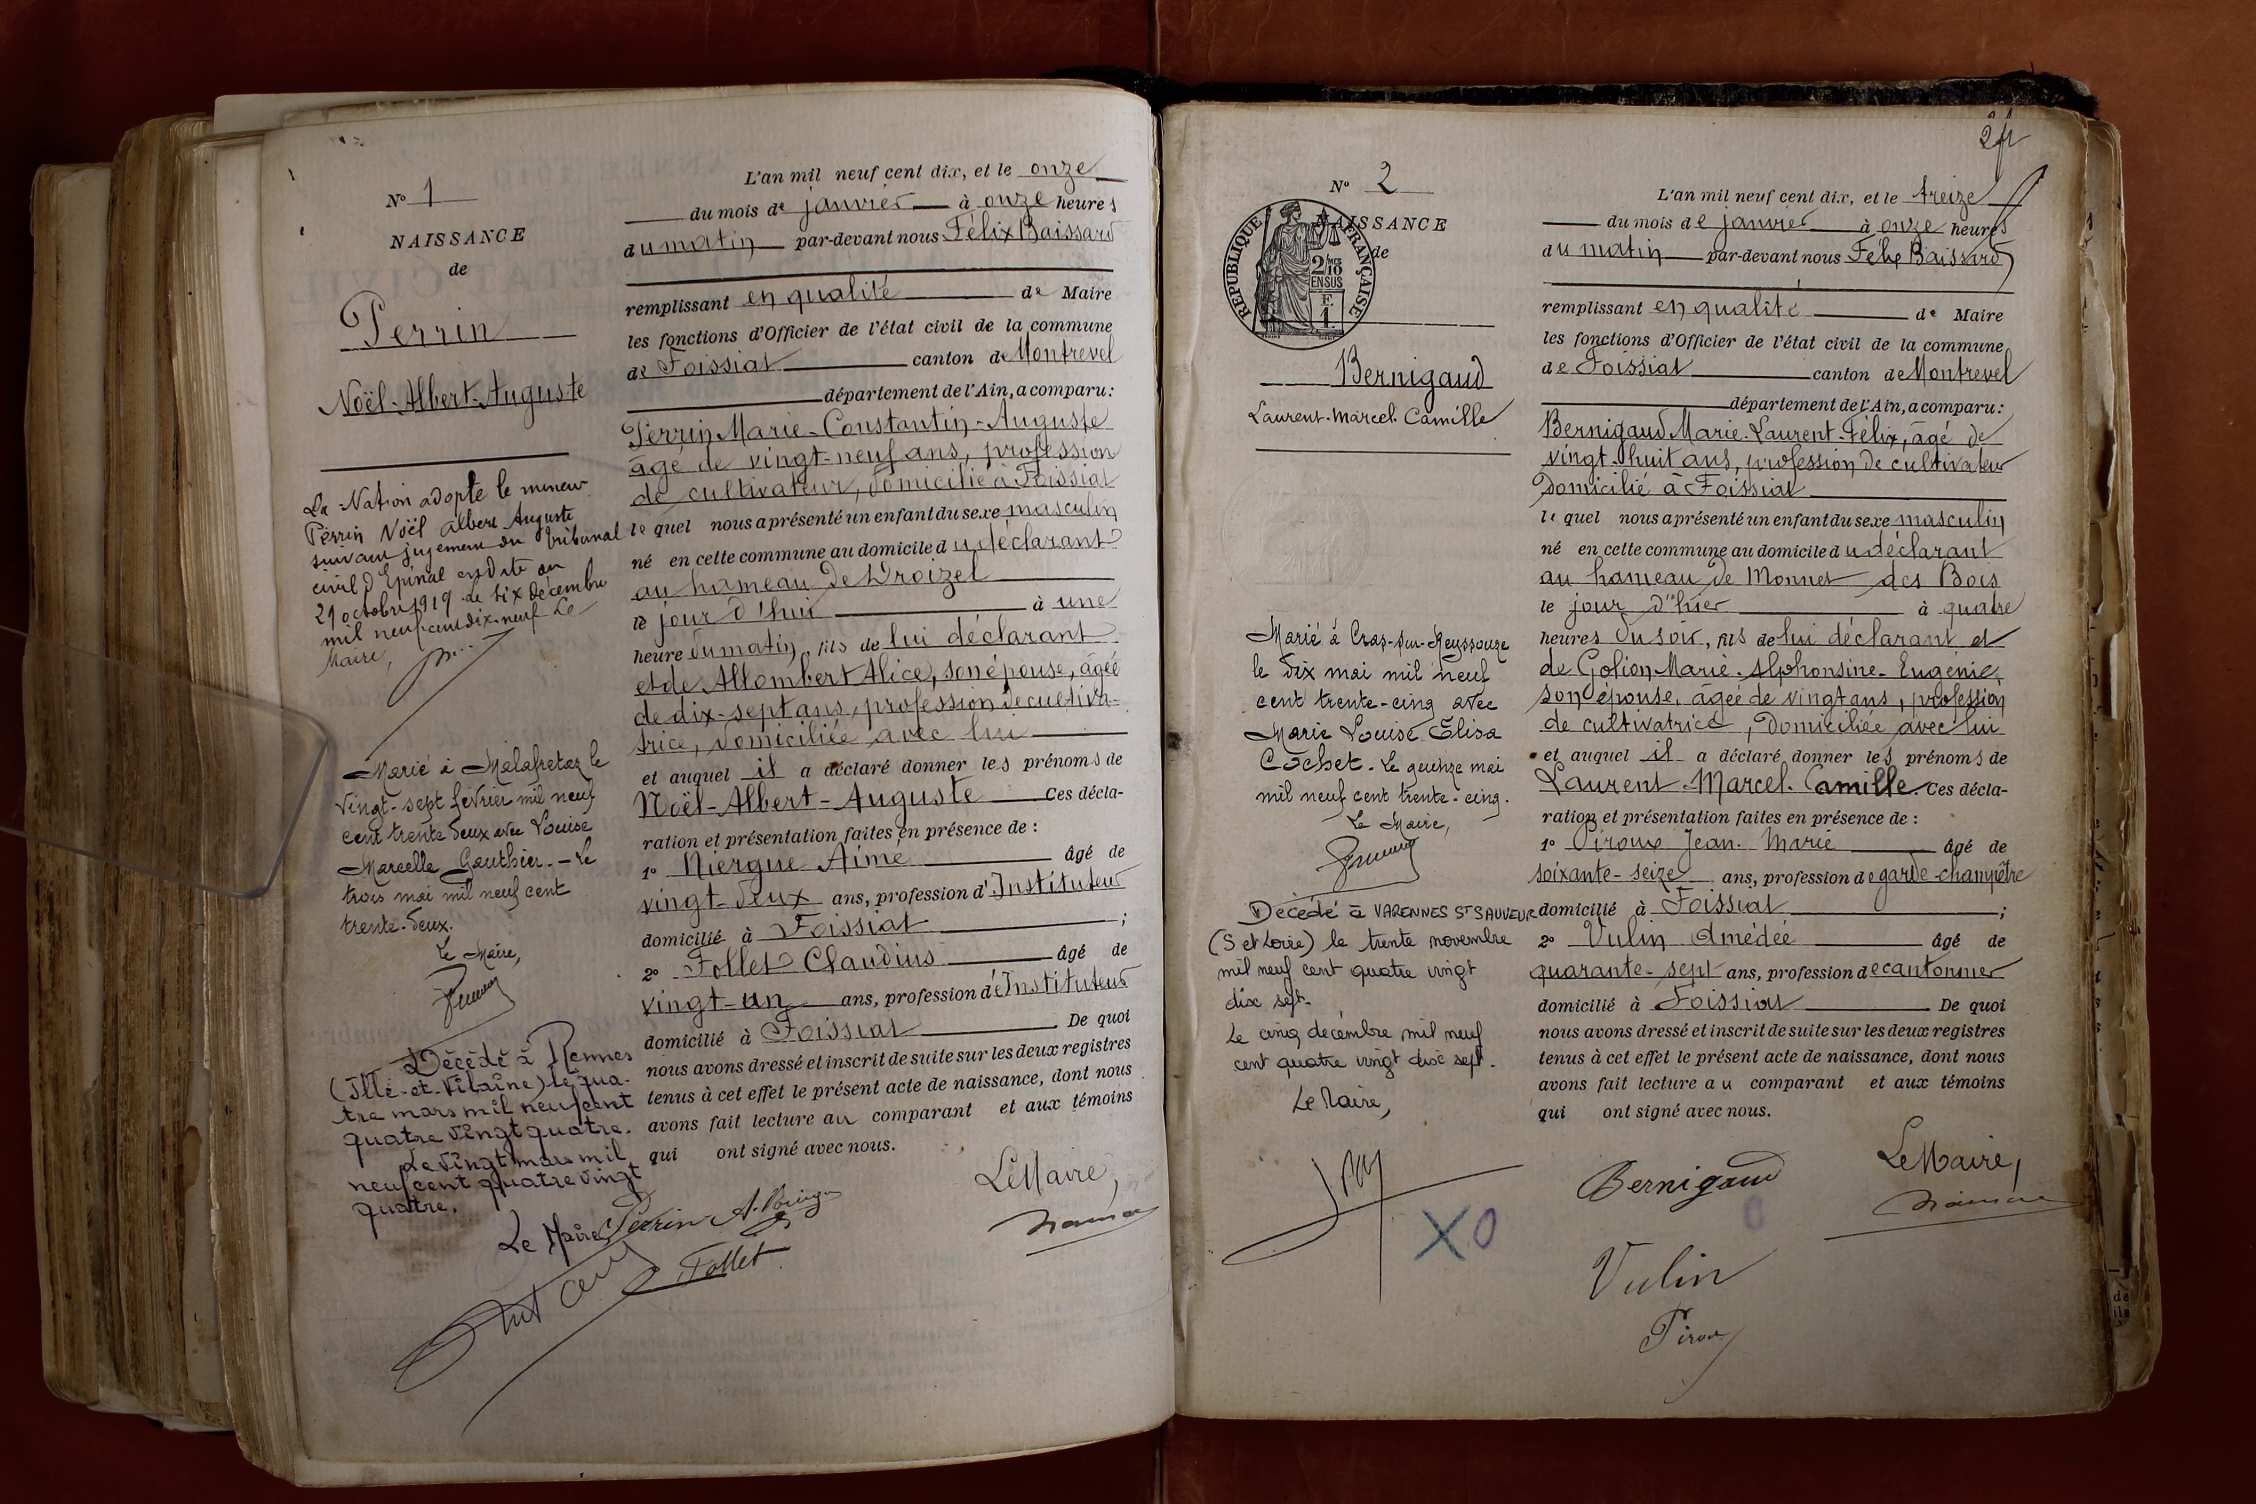 N° 1
NAISSANCE
de
Perrin
Noël-Albert-Auguste
La Nation adopte le mineur
Perrin Noël Albert Auguste
suivant jugement du tribunal
civil d'Epinal en date du
29 octobre 1919. Le dix décembre
mil neuf cent dix-neuf Le
Maire,
Marié à Malafretaz le
vingt-sept février mil neuf
cent trente deux avec Louise
Marcelle Gauthier. - Le
trois mai mil neuf cent
trente-deux.
Le Maire,
Décédé à Rennes
(Ille-et-Vilaine) le qua-
tre mars mil neuf cent
quatre vingt quatre.
Le vingt mars mil
neuf cent quatre vingt
quatre.
Le Maire
L'an mil neuf cent dix, et le onze
du mois de janvier à onze heures
du matin par-devant nous Félix Baissard
remplissant en qualité de Maire
les fonctions d'Officier de l'état civil de la commune
de Foissiat canton de Montrevel
département de l'Ain, a comparu:
Perrin Marie-Constantin-Auguste
âgé de vingt-neuf ans, profession
de cultivateur, domicilié à Foissiat
lequel nous a présenté un enfant du sexe masculin
né en cette commune au domicile du déclarant
au hameau de Droizel
le jour d'hui à une
heure du matin, fils de lui déclarant
et de Allombert Alice, son épouse, âgée
de dix-sept ans, profession de cultiva-
trice, domiciliée avec lui
et auquel il a déclaré donner les prénoms de
Noël-Albert-Auguste Ces décla-
ration et présentation faites en présence de :
1° Niergue Aimé âgé de
vingt-deux ans, profession d'Instituteur
domicilié à Foissiat ;
2° Follet Claudius âgé de
vingt-un ans, profession d'Instituteur
domicilié à Foissiat De quoi
nous avons dressé et inscrit de suite sur les deux registres
tenus à cet effet le présent acte de naissance, dont nous
avons fait lecture au comparant et aux témoins
qui ont signé avec nous.
Le Maire,
Perrin
Follet
2
N° 2
NAISSANCE
de
RÉPUBLIQUE FRANÇAISE
2/10
EN SUS
F.
1.
Bernigaud
Laurent-Marcel-Camille
Marié à Cras-sur-Reyssouze
le dix mai mil neuf
cent trente-cinq avec
Marie Louise Elisa
Cochet. Le quinze mai
mil neuf cent trente-cinq.
Le Maire,
Décédé à VARENNES ST SAUVEUR
(S et Loire) le trente novembre
mil neuf cent quatre vingt
dix sept.
Le cinq décembre mil neuf
cent quatre vingt dix sept.
Le Maire,
XO
L'an mil neuf cent dix, et le treize
du mois de janvier à onze heures
du matin par-devant nous Félix Baissard
remplissant en qualité de Maire
les fonctions d'Officier de l'état civil de la commune
de Foissiat canton de Montrevel
département de l'Ain, a comparu:
Bernigaud Marie-Laurent-Félix, âgé de
vingt-huit ans, profession de cultivateur
domicilié à Foissiat
lequel nous a présenté un enfant du sexe masculin
né en cette commune au domicile du déclarant
au hameau de Monnet des Bois
le jour d'hier à quatre
heures du soir, fils de lui déclarant et
de Golion Marie-Alphonsine-Eugénie,
son épouse, âgée de vingt ans, profession
de cultivatrice, domiciliée avec lui
et auquel il a déclaré donner les prénoms de
Laurent-Marcel-Camille. Ces décla-
ration et présentation faites en présence de :
1° Piroux Jean-Marie âgé de
soixante-seize ans, profession de garde-champêtre
domicilié à Foissiat ;
2° Vulin Amédée âgé de
quarante-sept ans, profession de cantonnier
domicilié à Foissiat De quoi
nous avons dressé et inscrit de suite sur les deux registres
tenus à cet effet le présent acte de naissance, dont nous
avons fait lecture au comparant et aux témoins
qui ont signé avec nous.
Le Maire,
Bernigaud
Vulin